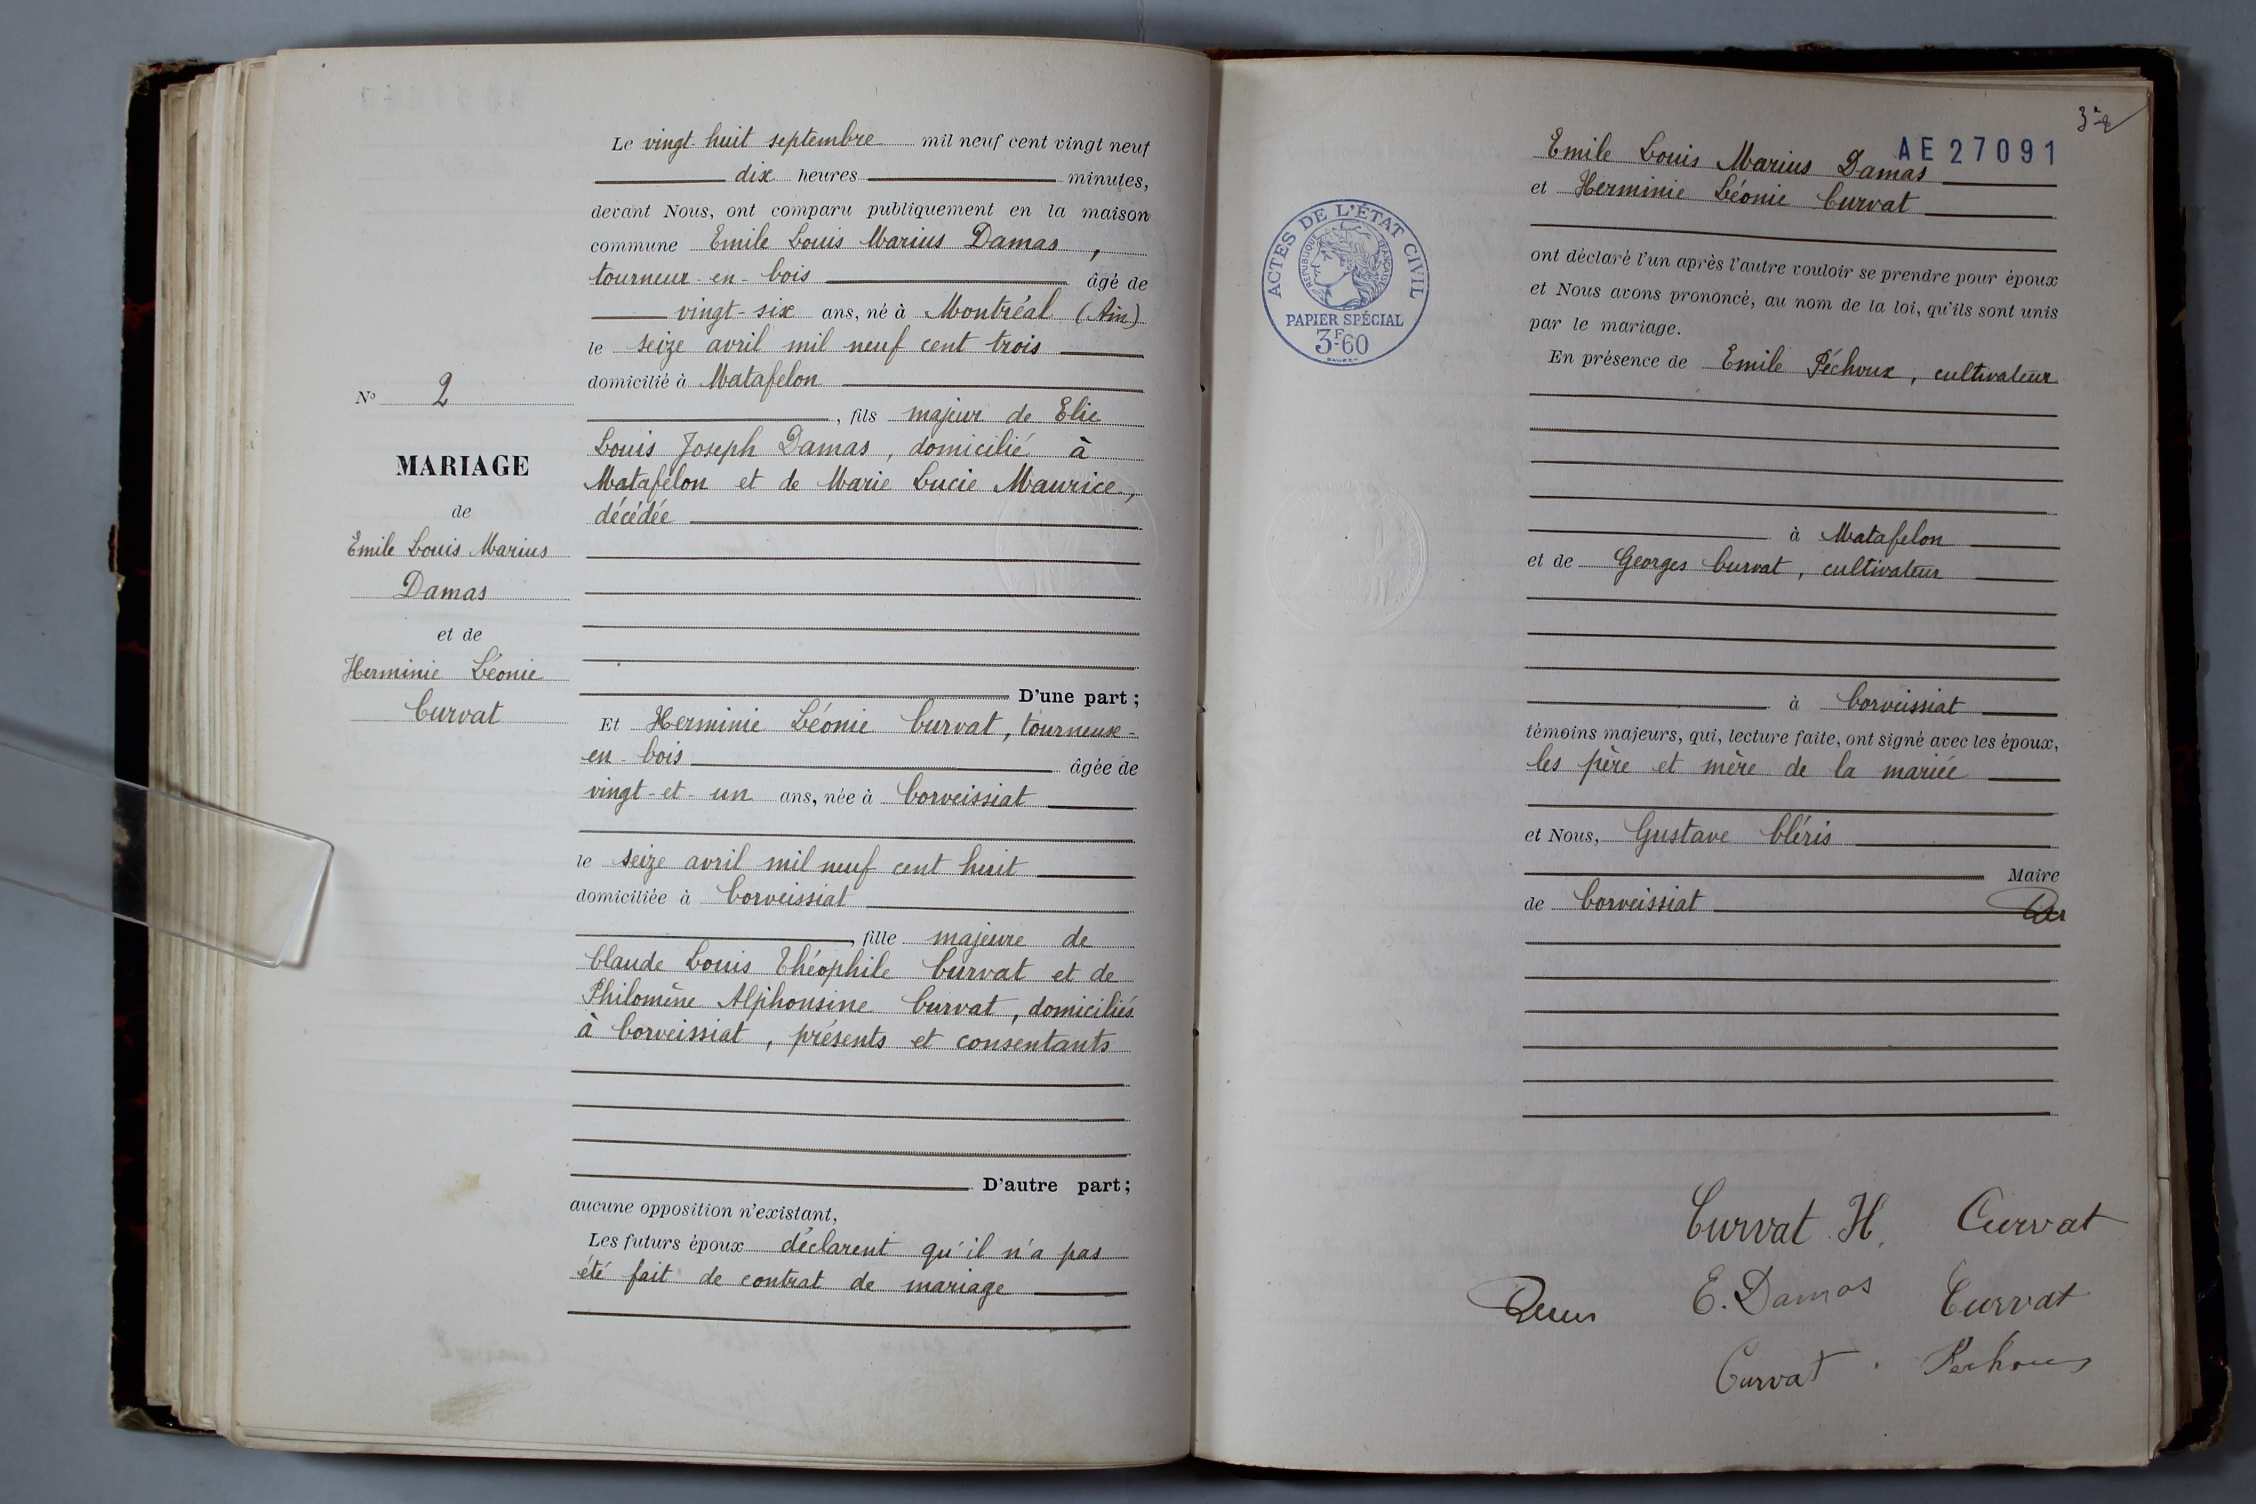 Le vingt-huit septembre mil neuf cent vingt neuf
dix heures minutes,
devant Nous, ont comparu publiquement en la maison
commune Emile Louis Marius Damas,
tourneur-en-bois âgé de
vingt-six ans, né à Montréal (Ain)
le seize avril mil neuf cent trois
domicilié à Matafelon
, fils majeur de Elie
Louis Joseph Damas, domicilié à
Matafelon et de Marie Lucie Maurice,
décédée
D'une part ;
Et Herminie Léonie Curvat, tourneuse-
en-bois âgée de
vingt-et-un ans, née à Corveissiat
le seize avril mil neuf cent huit
domiciliée à Corveissiat
, fille majeure de
Claude Louis Théophile Curvat et de
Philomène Alphonsine Curvat, domiciliés
à Corveissiat, présents et consentants
D'autre part ;
aucune opposition n'existant,
Les futurs époux déclarent qu'il n'a pas
été fait de contrat de mariage
No 2
MARIAGE
de
Emile Louis Marius
Damas
et de
Herminie Léonie
Curvat
AE 27091
ACTES DE L'ÉTAT CIVIL
RÉPUBLIQUE FRANÇAISE
PAPIER SPÉCIAL
3F.60
Emile Louis Marius Damas
et Herminie Léonie Curvat
ont déclaré l'un après l'autre vouloir se prendre pour époux
et Nous avons prononcé, au nom de la loi, qu'ils sont unis
par le mariage.
En présence de Emile Péchoux, cultivateur
à Matafelon
et de Georges Curvat, cultivateur
à Corveissiat
témoins majeurs, qui, lecture faite, ont signé avec les époux,
les père et mère de la mariée
et Nous, Gustave Cléris
Maire
de Corveissiat
Curvat H. Curvat
E. Damas Curvat
Curvat Pechoux